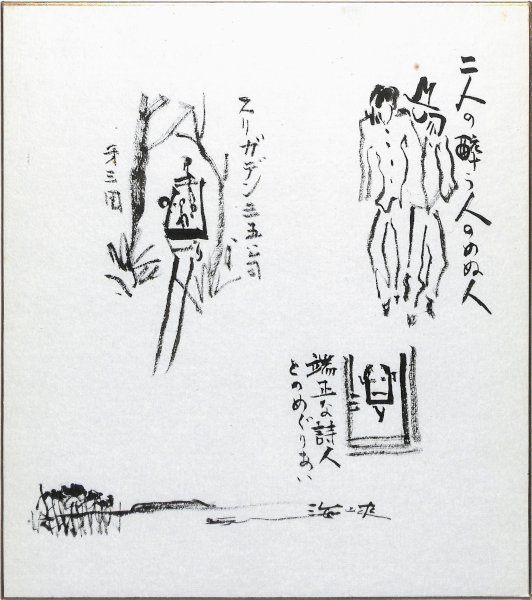 二人の酔う人のめぬ人
スリガデン三五八号
第三園
端正な詩人
とのめぐりあい